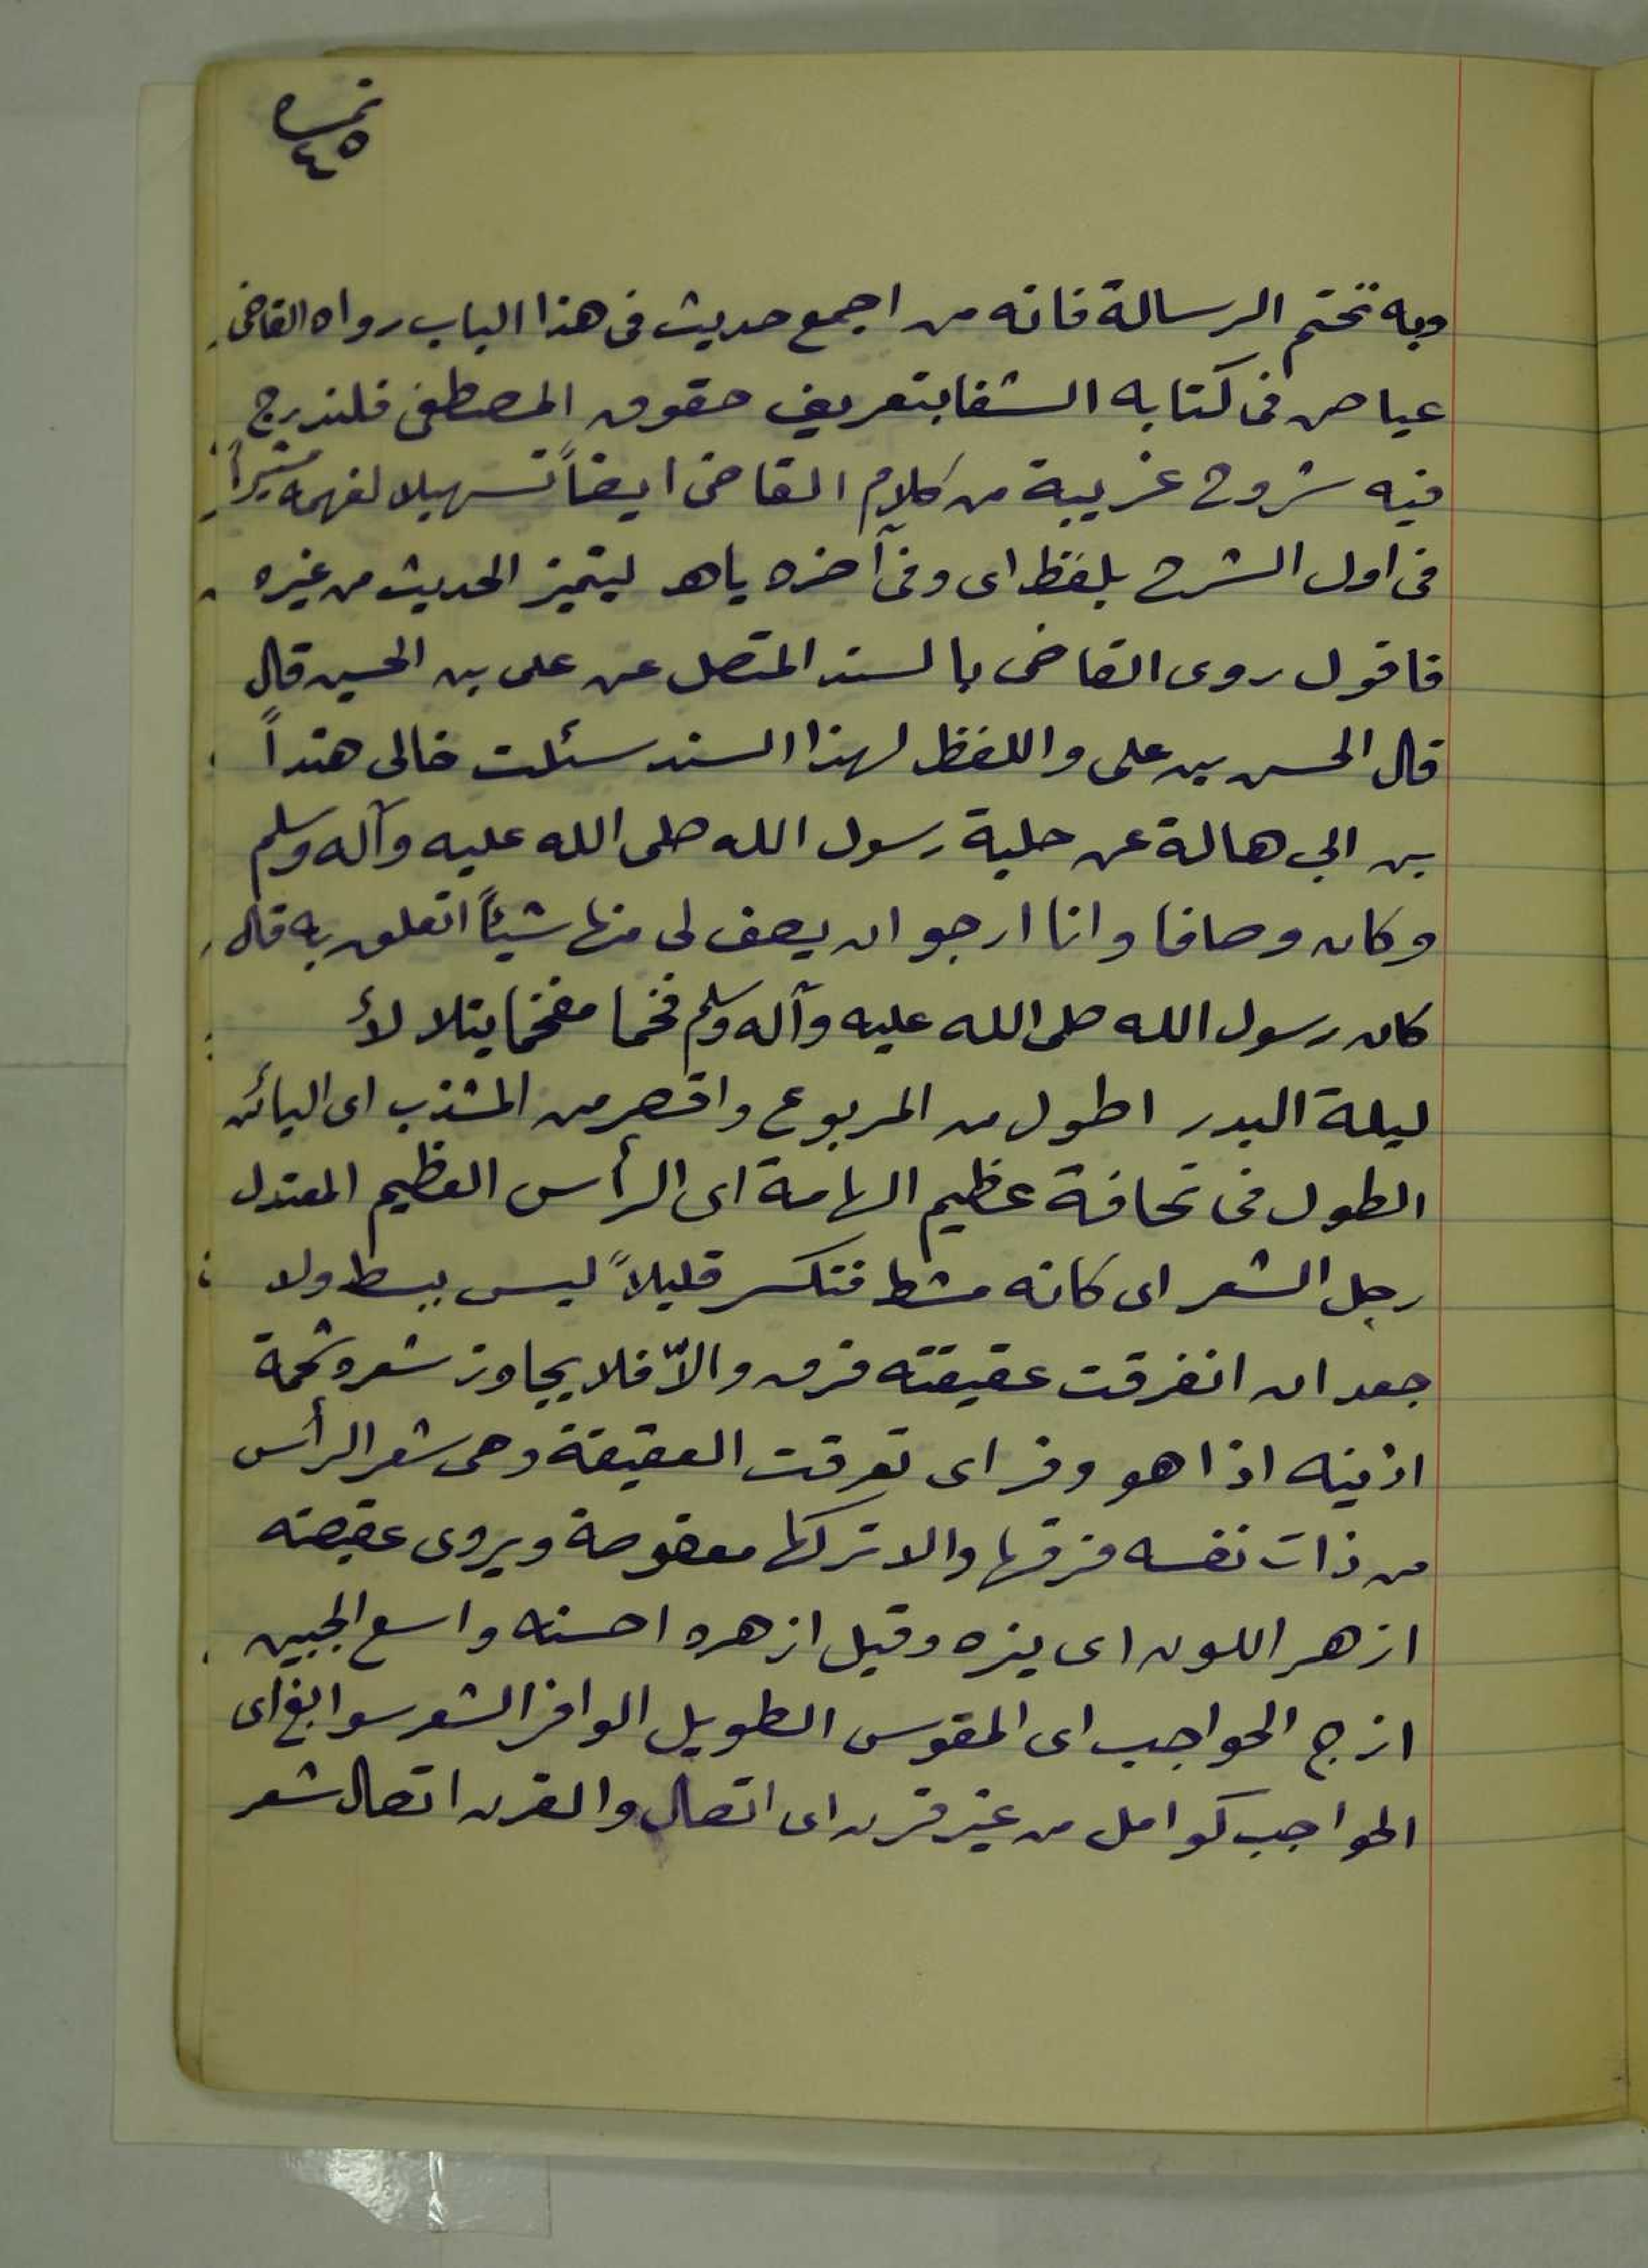 نمره
٤٥
وبه نختم الرسالة فانه من اجمع حديث فى هذا الباب رواه القاضى
عياض فى كتابه الشفا بتعريف حقوق المصطفى فلندرج
فيه شروح غريبة من كلام القاضى ايضاً تسهيلا لفهمه مشيراً
فى اول الشرح بلفظ اى وفى آخره ياهـ ليتميز الحديث من غيره
فاقول روى القاضى بالسند المتصل عن على بن الحسين قال
قال الحسن بن على واللفظ لهذا السند سئلت خالى هنداً
بن ابي هالة عن حلية رسول الله صلى الله عليه وآله وسلم
وكان وصافا وانا ارجو ان يصف لى منها شيئاً اتعلق به قال
كان رسول الله صلى الله عليه وآله وسلم فخما مفخما يتلا لأ
ليلة البدر اطول من المربوع واقصر من المشذب اى البائن
الطول فى نحافة عظيم الهامة اى الرأس العظيم المعتدل
رجل الشعر اى كانه مشط فتكسر قليلاً ليس ببسط ولا
جعد ان انفرقت عقيقته فرق والاّ فلا يجاوز شعره شحمة
اذنيه اذا هو وفر اى تفرقت العقيقة وهى شعر الرأس
من ذات نفسه فرقها والا تركها معقوصة ويروى عقيصته
ازهر اللون اى نيره وقيل ازهره احسنه واسع الجبين
ازج الحواجب اى المقوس الطويل الوافر الشعر سوابغ اى
الحواجب كوامل من غير قرن اى اتصال والقرن اتصال شعر